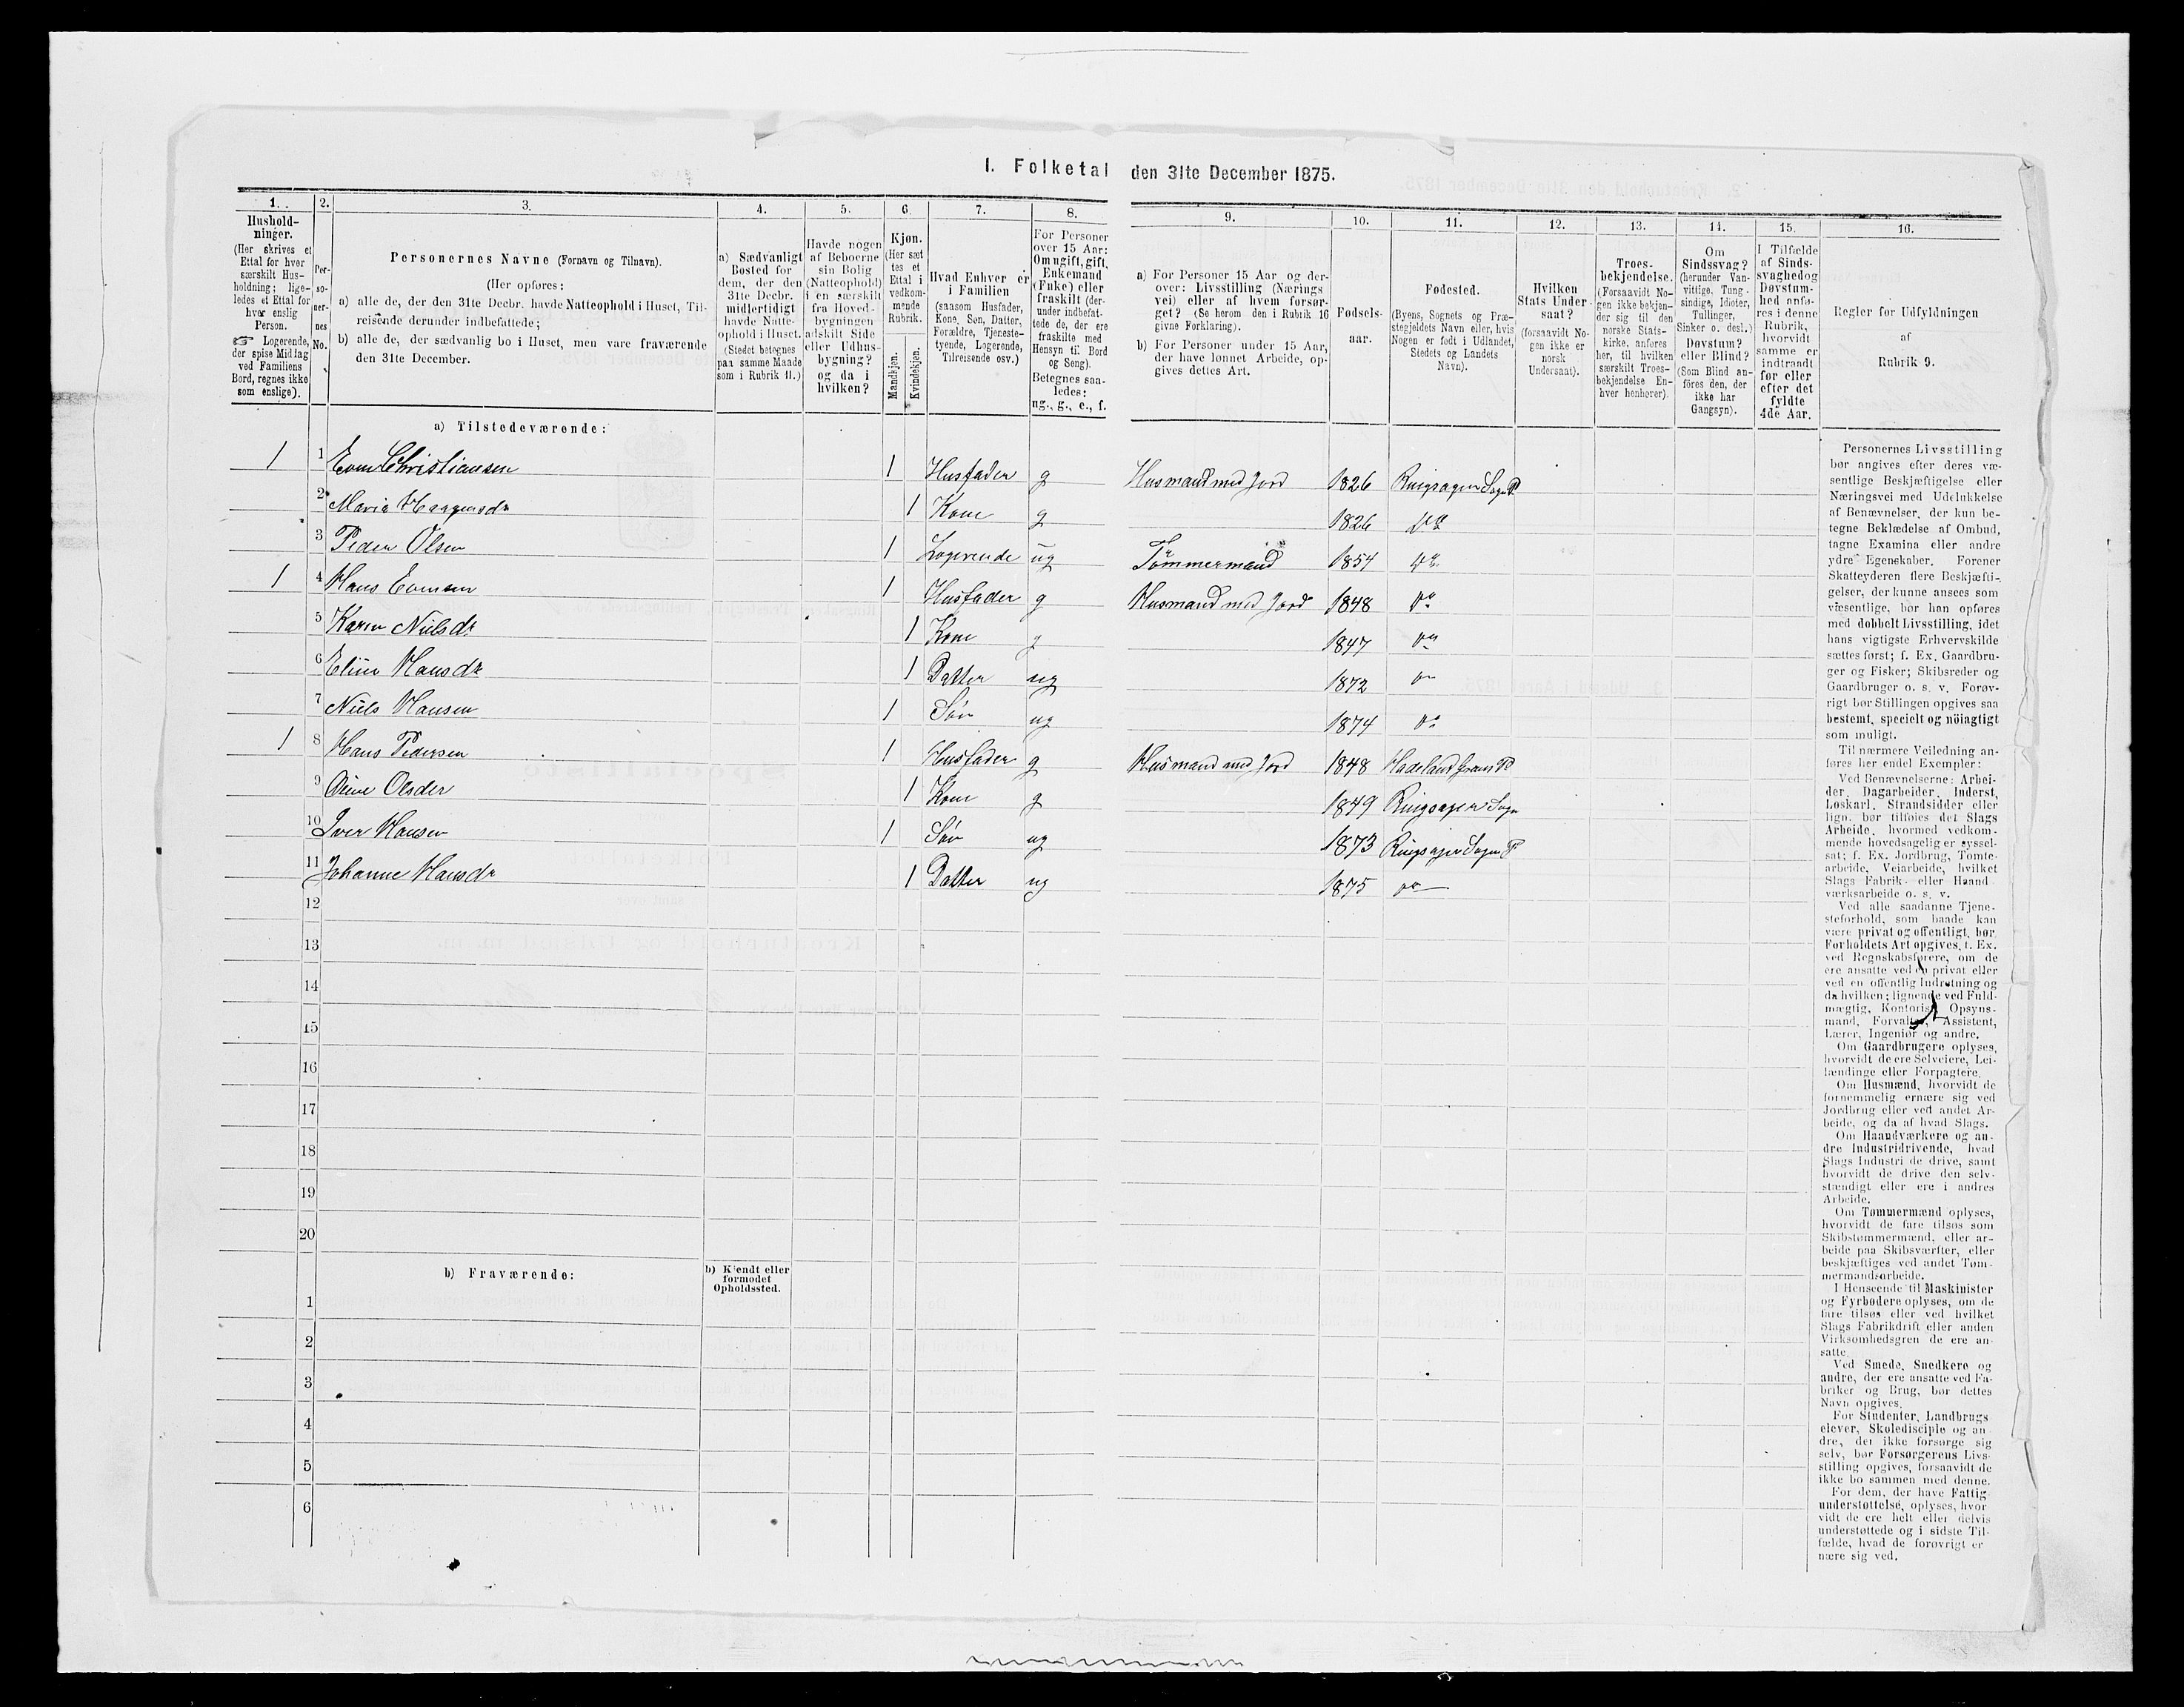 I. Folketal den 31te December 1875.
1.
Hushold-
ninger.
(Her skrives et
Ettal for hver
særskilt Hus-
holdning; lige-
ledes et Ettal for
hver enslig
Person.
☞ Logerende,
der spise Middag
ved Familiens
Bord, regnes ikke
som enslige).
2.
Per-
so-
ner-
nes
No.
3.
Personernes Navne (Fornavn og Tilnavn).
(Her opføres:
a) alle de, der den 31te Decbr. havde Natteophold i Huset, Til-
reisende derunder indbefattede;
b) alle de, der sædvanlig bo i Huset, men vare fraværende
den 31te December.
4.
a) Sædvanligt
Bosted for
dem, der den
31te Decbr.
midlertidigt
havde Natte-
ophold i Huset.
(Stedet betegnes
paa samme Maade
som i Rubrik 11.)
5.
Havde nogen
af Beboerne
sin Bolig
(Natteophold)
i en særskilt
fra Hoved-
bygningen
adskilt Side
eller Udhus-
bygning?
og da i
hvilken?
6.
Kjøn.
(Her sæt
tes et
Ettal i
vedkom-
mende
Rubrik.
Mandkjøn.
Kvindekjøn.
7.
Hvad Enhver er
i Familien
(saasom Husfader,
Kone, Søn, Datter,
Forældre, Tjeneste-
tyende, Logerende,
Tilreisende osv.)
8.
For Personer
over 15 Aar:
Om ugift, gift,
Enkemand
(Enke) eller
fraskilt (der-
under indbefat-
tede de, der ere
fraskilte med
Hensyn til Bord
og Seng).
Betegnes saa-
ledes:
ug., g., e., f.
9.
a) For Personer 15 Aar og der-
over: Livsstilling (Nærings
vei) eller af hvem forsør-
get? (Se herom den i Rubrik 16
givne Forklaring).
b) For Personer under 15 Aar,
der have lønnet Arbeide, op-
gives dettes Art.
10.
Fødsels-
aar.
11.
Fødested.
(Byens, Sognets og Præ-
stegjeldets Navn eller, hvis
Nogen er født i Udlandet,
Stedets og Landets
Navn).
12.
Hvilken
Stats Under-
saat?
(forsaavidt No-
gen ikke er
norsk
Undersaat).
13.
Troes-
bekjendelse.
(Forsaavidt No-
gen ikke bekjen-
der sig til den
norske Stats-
kirke, anføres
her, til hvilken
særskilt Troes-
bekjendelse En-
hver henhører).
14.
Om
Sindssvag?
(herunder Van-
vittige, Tung-
sindige, Idioter,
Tullinger,
Sinker o. desl.)
Døvstum?
eller Blind?
(Som Blind an-
føres den, der
ikke har
Gangsyn).
15.
I Tilfælde
af Sinds-
svaghed og
Døvstum-
hed anfø-
res i denne
Rubrik,
hvorvidt
samme er
indtraadt
før eller
efter det
fyldte
4de Aar.
16.
Regler for Udfyldningen
af
Rubrik 9.
a) Tilstedeværende:
1 1 Even Christiansen 1 Husfader g Husmand med Jord 1826 Ringsager Sogn P.
2 Marie Haagensdr 1 Kone g 1826 do
3 Peder Olsen 1 Logerende ug Tömmermand 1854 do
1 4 Hans Evensen 1 Husfader g Husmand med Jord 1848 do
5 Karen Nielsdr 1 Kone g 1847 do
6 Eline Hansdr 1 Datter ug 1872 do
7 Niels Hansen 1 Søn ug 1874 do
1 8 Hans Pedersen 1 Husfader g Husmand med Jord 1848 Hadeland Grans P
9 Oline Olsdr 1 Kone g 1849 Ringsager Sogn
10 Iver Hansen 1 Søn ug 1873 Ringsager Sogn P
11 Johanne Hansdr 1 Datter ug 1875 do
12
13
14
15
16
17
18
19
20
b) Fraværende:
b) Kjendt eller
formodet
Opholdssted.
1
2
3
4
5
6
Personernes Livsstilling
bør angives efter deres væ-
sentlige Beskjæftigelse eller
Næringsvei med Udelukkelse
af Benævnelser, der kun be-
tegne Beklædelse af Ombud,
tagne Examina eller andre
ydre Egenskaber. Forener
Skatteyderen flere Beskjæfti-
gelser, der kunne ansees som
væsentlige, bør han opføres
med dobbelt Livsstilling, idet
hans vigtigste Erhvervskilde
sættes først; f. Ex. Gaardbru-
ger og Fisker; Skibsreder og
Gaardbruger o. s. v. Forøv-
rigt bør Stillingen opgives saa
bestemt, specielt og nöiagtigt
som muligt.
Til nærmere Veiledning an-
føres her endel Exempler:
Ved Benævnelserne: Arbei-
der, Dagarbeider, Inderst,
Løskarl, Strandsidder eller
lign. bør tilføies det Slags
Arbeide, hvormed vedkom-
mende hovedsagelig er syssel-
sat; f. Ex. Jordbrug, Tomte-
arbeide, Veiarbeide, hvilket
Slags Fabrik- eller Haand-
værksarbeide o. s. v.
Ved alle saadanne Tjene-
steforhold, som baade kan
være privat og offentligt, bør
Forholdets Art opgives, f. Ex.
ved Regnskabsførere, om de
ere ansatte ved en privat eller
ved en offentlig Indretning og
da hvilken; lignende ved Fuld-
mægtig, Kontorist, Opsyns-
mand, Forvalter, Assistent,
Lærer, Ingeniør og andre.
Om Gaardbrugere oplyses,
hvorvidt de ere Selveiere, Lei-
lændinge eller Forpagtere.
Om Husmænd, hvorvidt de
fornemmelig ernære sig ved
Jordbrug eller ved andet Ar-
beide, og da af hvad Slags.
Om Haandværkere og an-
dre Industridrivende, hvad
Slags Industri de drive, samt
hvorvidt de drive den selv-
stændigt eller ere i andres
Arbeide.
Om Tømmermænd oplyses,
hvorvidt de fare tilsøs som
Skibstømmermænd, eller ar-
beide paa Skibsværfter, eller
beskjæftiges ved andet Tøm-
mermandsarbeide.
I Henseende til Maskinister
og Fyrbødere oplyses, om de
fare tilsøs eller ved hvilket
Slags Fabrikdrift eller anden
Virksomhedsgren de ere an-
satte.
Ved Smede, Snedkere og
andre, der ere ansatte ved Fa-
briker og Brug, bør dettes
Navn opgives.
For Studenter, Landbrugs
elever, Skoledisciple og an-
dre, der ikke forsørge sig
selv, bør Forsørgerens Livs-
stilling opgives, forsaavidt de
ikke bo sammen med denne.
For dem, der have Fattig-
understøttelse, oplyses, hvor
vidt de ere helt eller delvis
understøttede og i sidste Til-
fælde, hvad de forøvrigt er
nære sig ved.